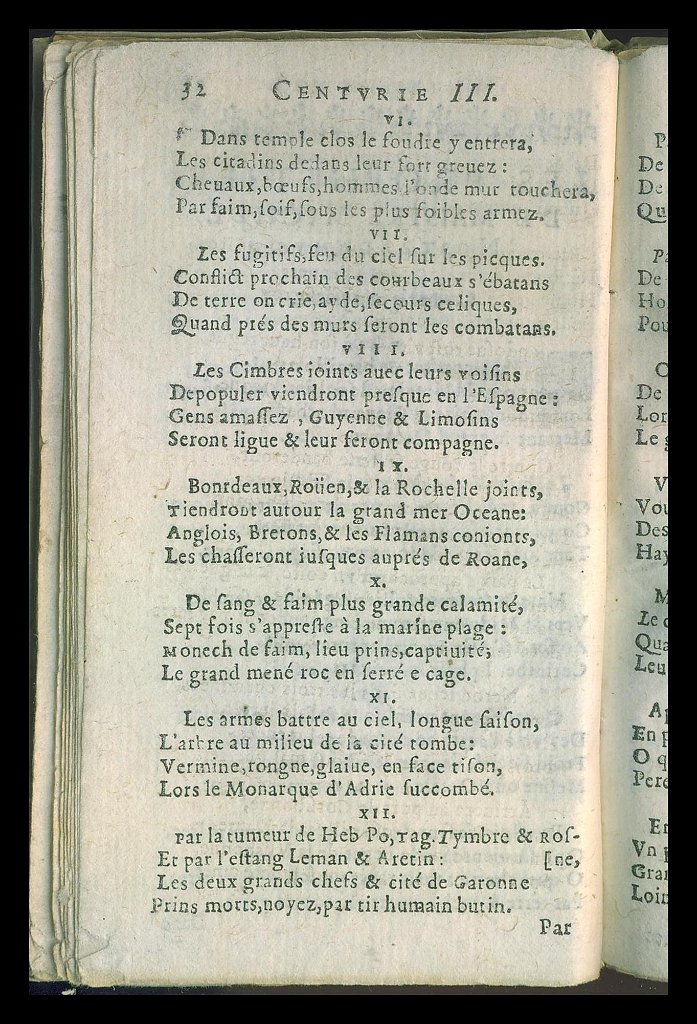 32 CENTVRIE III.
VI.
Dans temple clos le foudre y entrera,
Les citadins dedans leur fort greuez :
Cheuaux,bœufs,hommes l'onde mur touchera,
Par faim,ſoif,ſous les plus foibles armez.
VII.
Les fugitifs,feu du ciel ſur les picques.
Conflict prochain des courbeaux s'ébatans
De terre on crie,ayde,ſecours celiques,
Quand prés des murs ſeront les combatans.
VIII.
Les Cimbres ioints auec leurs voiſins
Depopuler viendront preſque en l'Eſpagne :
Gens amaſſez , Guyenne & Limoſins
Seront ligue & leur feront compagne.
IX.
Bonrdeaux,Roüen,& la Rochelle joints,
Tiendront autour la grand mer Oceane:
Anglois, Bretons,& les Flamans conionts,
Les chaſſeront iuſques auprés de Roane,
X.
De ſang & faim plus grande calamité,
Sept fois s'appreſte à la marine plage :
Monech de faim, lieu prins,captiuité;
Le grand mené roc en ferré e cage.
XI.
Les armes battre au ciel, longue ſaiſon,
L'arbre au milieu de la cité tombe:
Vermine,rongne,glaiue, en face tiſon,
Lors le Monarque d'Adrie ſuccombé.
XII.
Par la tumeur de Heb Po,Tag.Tymbre & Roſ-
Et par l'eſtang Leman & Aretin : [ne,
Les deux grands chefs & cité de Garonne
Prins morts,noyez,par tir humain butin.
Par
De
De
Qu
De
Ho
Pou
De
Lor
Le
Vou
Des
Hay
Le
Qua
Leu
En p
O q
Pere
Er
Vn
Gran
Loin